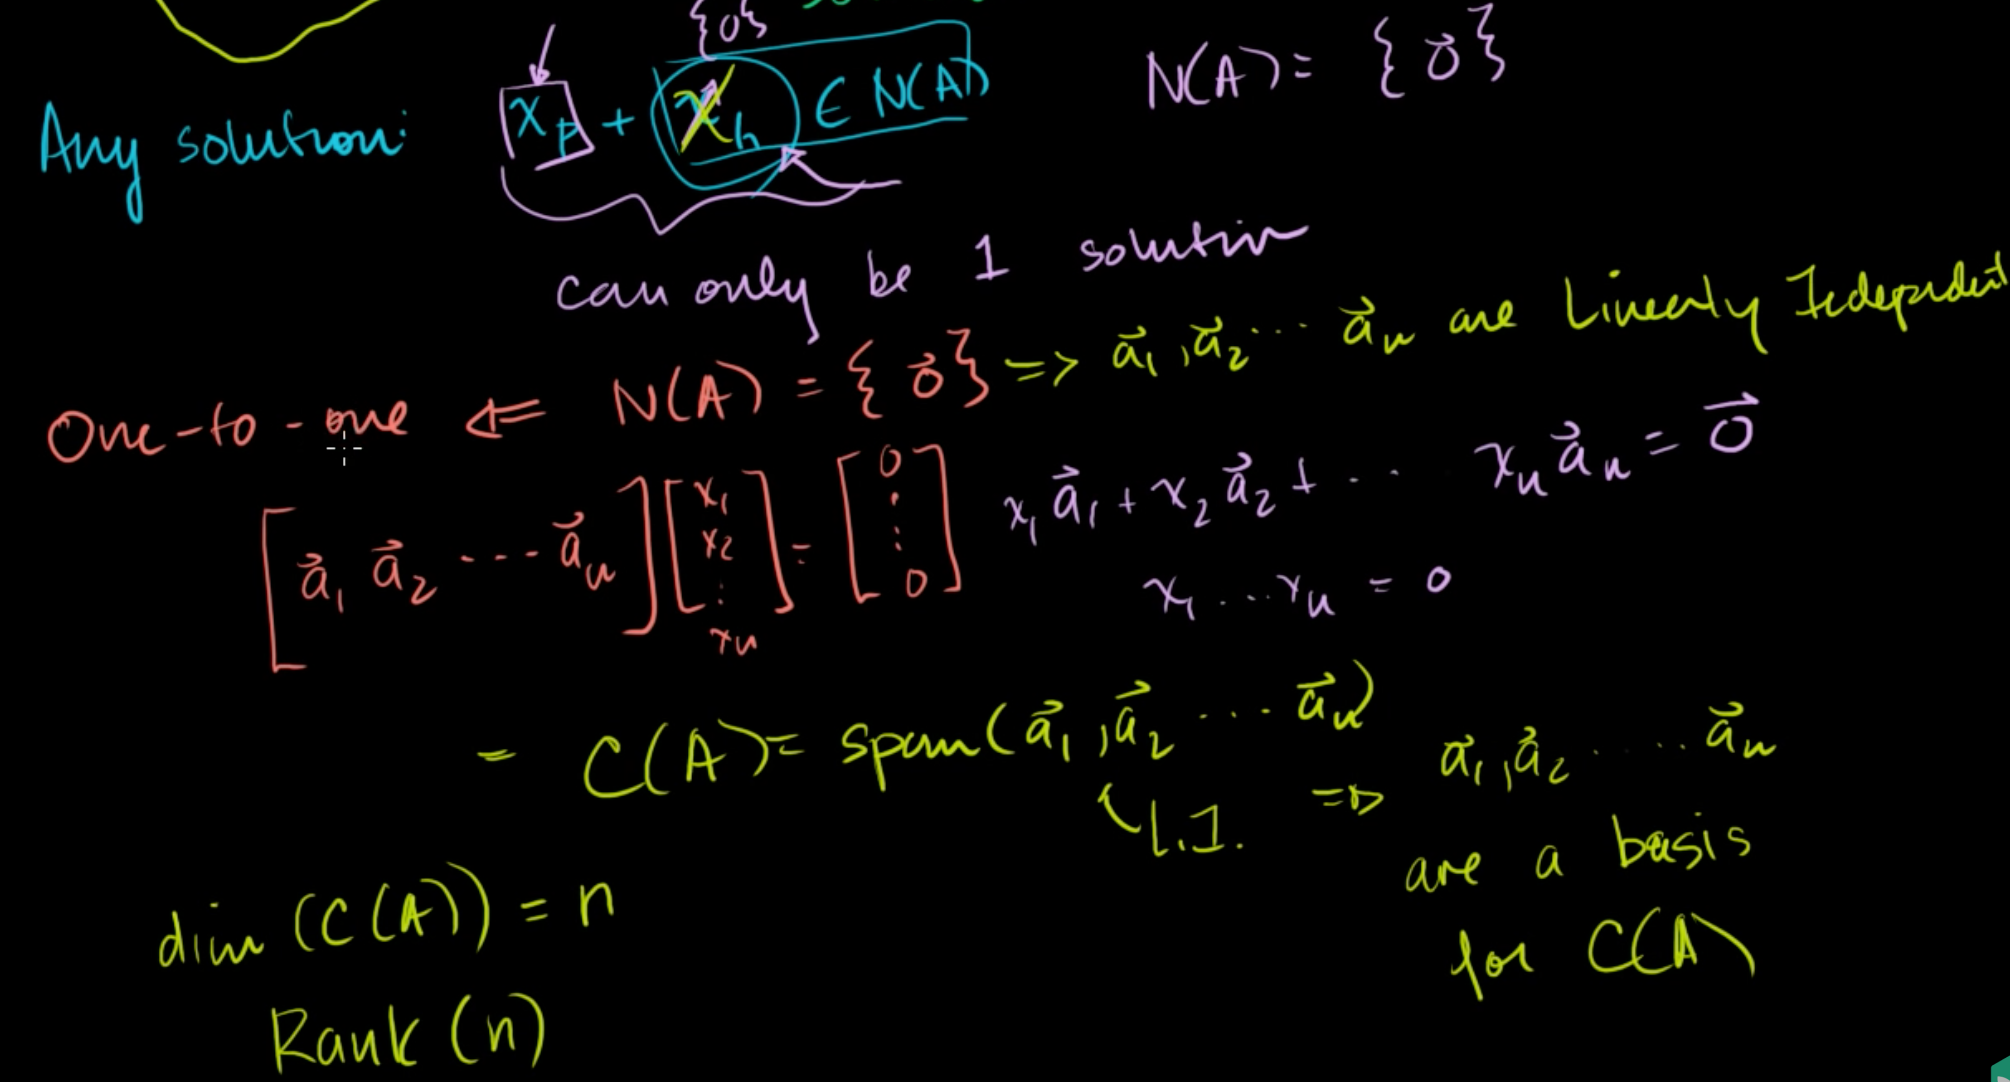 {0}
Any solution: x_p + x_h ∈ N(A)
N(A) = {0⃗}
can only be 1 solution
One-to-one ⇐ N(A) = {0⃗} => a⃗₁, a⃗₂ ... a⃗ₙ are Linearly Independent
[a⃗₁ a⃗₂ ... a⃗ₙ] [x₁ x₂ ⋮ xₙ] = [0 ⋮ 0]
x₁a⃗₁ + x₂a⃗₂ + ... xₙa⃗ₙ = 0⃗
x₁ ... xₙ = 0
= C(A) = span(a⃗₁, a⃗₂ ... a⃗ₙ)
L.I. => a⃗₁, a⃗₂ ..... a⃗ₙ
are a basis
for C(A)
dim (C(A)) = n
Rank (n)